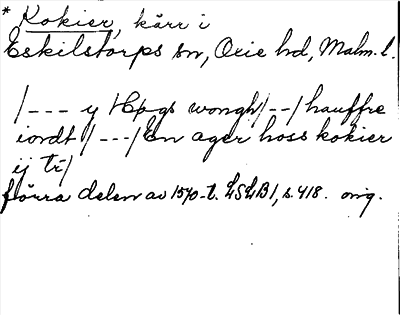 * Kokier, kärr i
Eskilstorps sn, Oxie hd, Malm. l.
/--- y Höygs wongh/--/hauffre
iordt/---/En ager hoss kokier
ij tr/
förra delen av 1570-t. LSLB1, s. 418. orig.